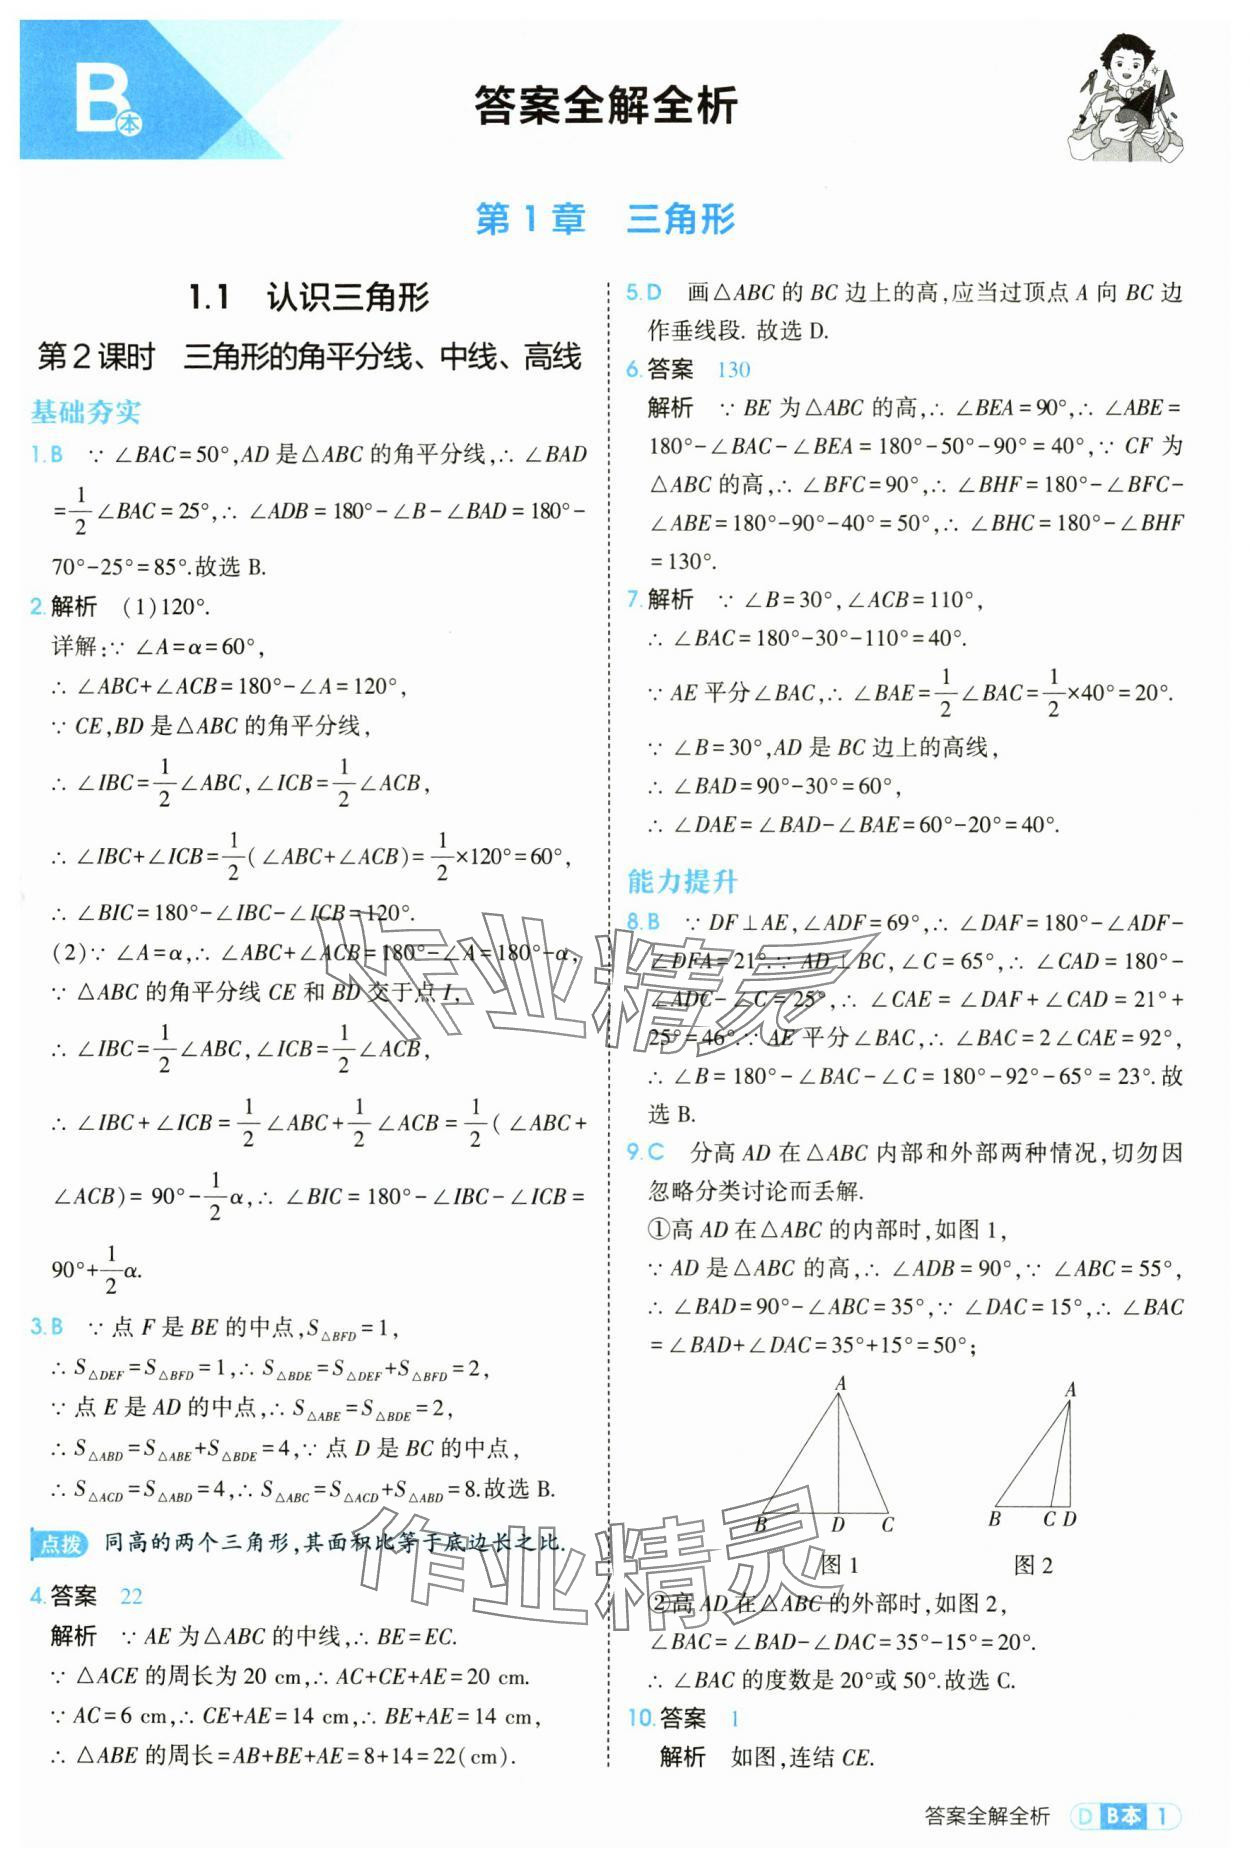 B本
答案全解全析
第1章 三角形
1.1 认识三角形
第2课时 三角形的角平分线、中线、高线
基础夯实
1.B ∵ ∠BAC=50°,AD是△ABC的角平分线,∴ ∠BAD
=1/2∠BAC=25°,∴ ∠ADB=180°-∠B-∠BAD=180°-
70°-25°=85°.故选B.
2.解析 (1)120°.
详解:∵ ∠A=α=60°,
∴ ∠ABC+∠ACB=180°-∠A=120°,
∵ CE,BD是△ABC的角平分线,
∴ ∠IBC=1/2∠ABC,∠ICB=1/2∠ACB,
∴ ∠IBC+∠ICB=1/2(∠ABC+∠ACB)=1/2×120°=60°,
∴ ∠BIC=180°-∠IBC-∠ICB=120°.
(2)∵ ∠A=α,∴ ∠ABC+∠ACB=180°-∠A=180°-α,
∵ △ABC的角平分线CE和BD交于点I,
∴ ∠IBC=1/2∠ABC,∠ICB=1/2∠ACB,
∴ ∠IBC+∠ICB=1/2∠ABC+1/2∠ACB=1/2(∠ABC+
∠ACB)=90°-1/2α,∴ ∠BIC=180°-∠IBC-∠ICB=
90°+1/2α.
3.B ∵ 点F是BE的中点,S△BFD=1,
∴ S△DEF=S△BFD=1,∴ S△BDE=S△DEF+S△BFD=2,
∵ 点E是AD的中点,∴ S△ABE=S△BDE=2,
∴ S△ABD=S△ABE+S△BDE=4,∵ 点D是BC的中点,
∴ S△ACD=S△ABD=4,∴ S△ABC=S△ACD+S△ABD=8.故选B.
点拨 同高的两个三角形,其面积比等于底边长之比.
4.答案 22
解析 ∵ AE为△ABC的中线,∴ BE=EC.
∵ △ACE的周长为20 cm,∴ AC+CE+AE=20 cm.
∵ AC=6 cm,∴ CE+AE=14 cm,∴ BE+AE=14 cm,
∴ △ABE的周长=AB+BE+AE=8+14=22(cm).
5.D 画△ABC的BC边上的高,应当过顶点A向BC边
作垂线段.故选D.
6.答案 130
解析 ∵ BE为△ABC的高,∴ ∠BEA=90°,∴ ∠ABE=
180°-∠BAC-∠BEA=180°-50°-90°=40°,∵ CF为
△ABC的高,∴ ∠BFC=90°,∴ ∠BHF=180°-∠BFC-
∠ABE=180°-90°-40°=50°,∴ ∠BHC=180°-∠BHF
=130°.
7.解析 ∵ ∠B=30°,∠ACB=110°,
∴ ∠BAC=180°-30°-110°=40°.
∵ AE平分∠BAC,∴ ∠BAE=1/2∠BAC=1/2×40°=20°.
∵ ∠B=30°,AD是BC边上的高线,
∴ ∠BAD=90°-30°=60°,
∴ ∠DAE=∠BAD-∠BAE=60°-20°=40°.
能力提升
8.B ∵ DF⊥AE,∠ADF=69°,∴ ∠DAF=180°-∠ADF-
∠DFA=21°.∵ AD⊥BC,∠C=65°,∴ ∠CAD=180°-
∠ADC-∠C=25°,∴ ∠CAE=∠DAF+∠CAD=21°+
25°=46°.∵ AE平分∠BAC,∴ ∠BAC=2∠CAE=92°,
∴ ∠B=180°-∠BAC-∠C=180°-92°-65°=23°.故
选B.
9.C 分高AD在△ABC内部和外部两种情况,切勿因
忽略分类讨论而丢解.
①高AD在△ABC的内部时,如图1,
∵ AD是△ABC的高,∴ ∠ADB=90°,∵ ∠ABC=55°,
∴ ∠BAD=90°-∠ABC=35°,∵ ∠DAC=15°,∴ ∠BAC
=∠BAD+∠DAC=35°+15°=50°;
A A
B D C B C D
图1 图2
②高AD在△ABC的外部时,如图2,
∠BAC=∠BAD-∠DAC=35°-15°=20°.
∴ ∠BAC的度数是20°或50°.故选C.
10.答案 1
解析 如图,连结CE.
答案全解全析 D B本 1
作业精灵
作业精灵